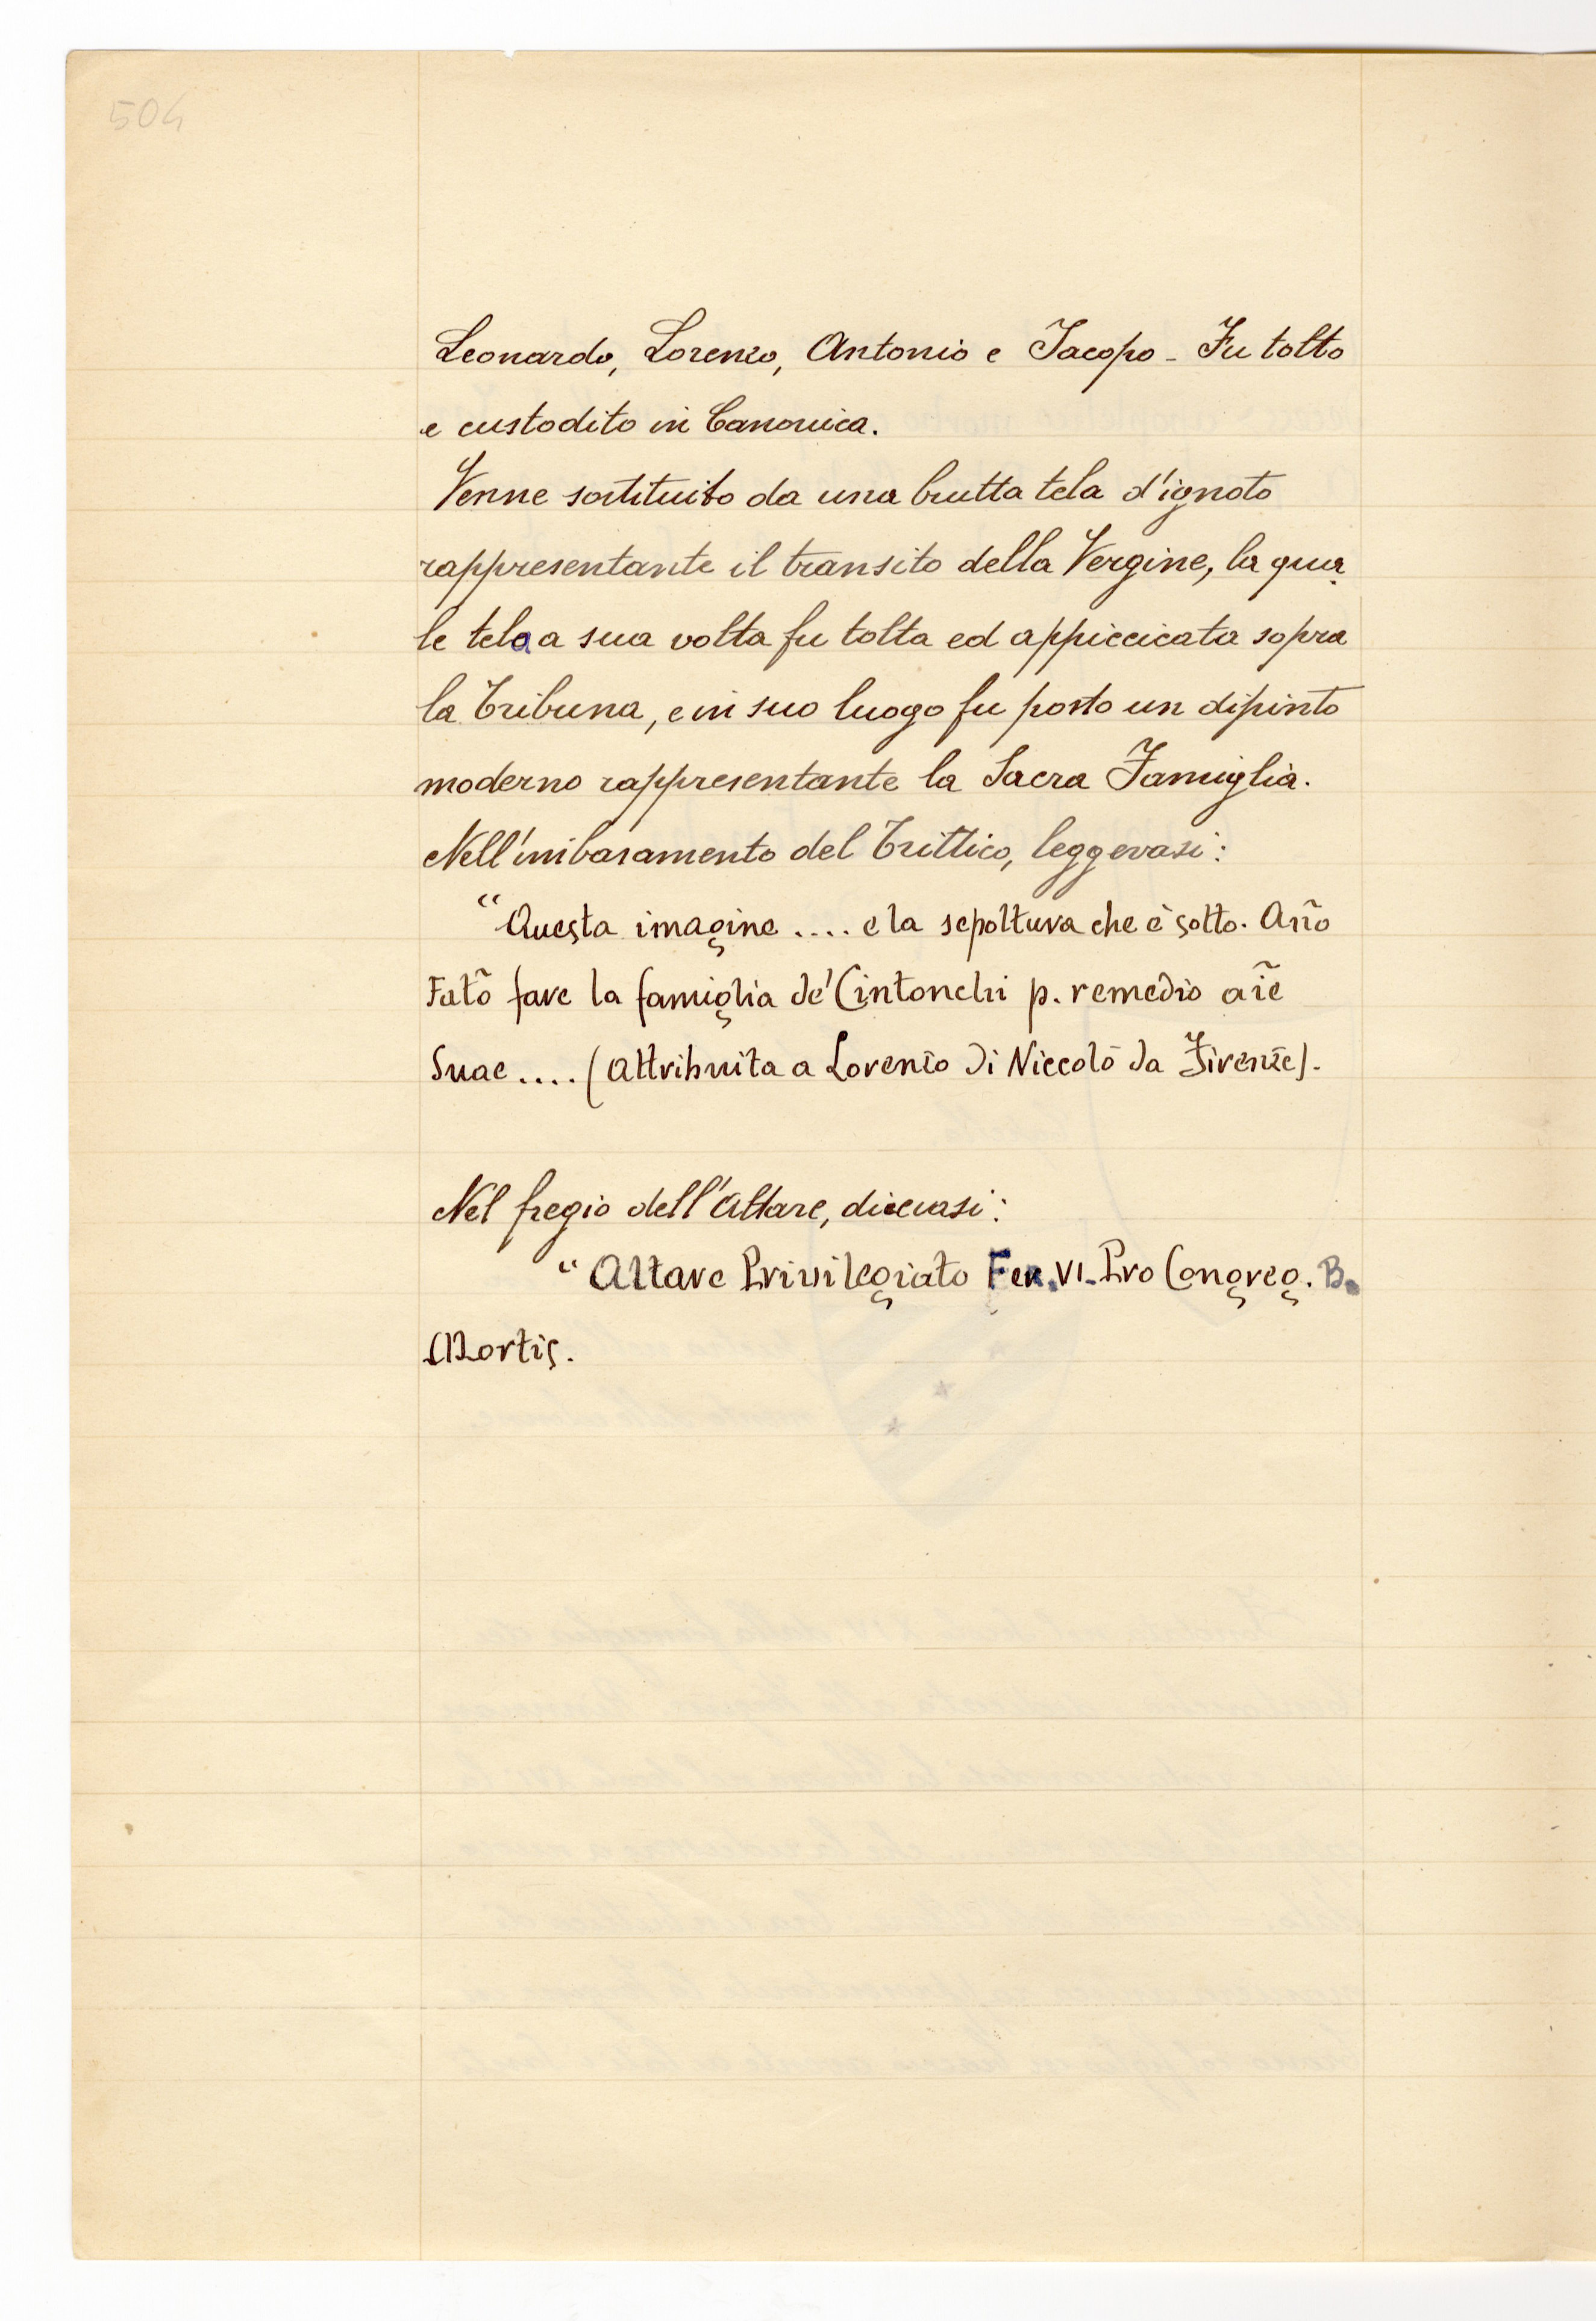 504
Leonardo, Lorenzo, Antonio e Jacopo - Fu tolto
e custodito in Canonica.
Venne sostituito da una brutta tela d'ignoto
rappresentante il transito della Vergine, la qua
le tela a sua volta fu tolta ed appiccicata sopra
la Tribuna, e in suo luogo fu posto un dipinto
moderno rappresentante la Sacra Famiglia.
Nell'imbasamento del Trittico, leggevasi:
"Questa imagine .... e la sepoltura che è sotto. Año
Fatõ fare la famiglia de' Cintonchi p. remedio aĩe
Suae .... (attribuita a Lorenzo di Niccolò da Firenze).
Nel fregio dell'Altare, dicevasi:
" Altare Privilegiato Fer. VI. Pro Congreg. B.
Mortis.